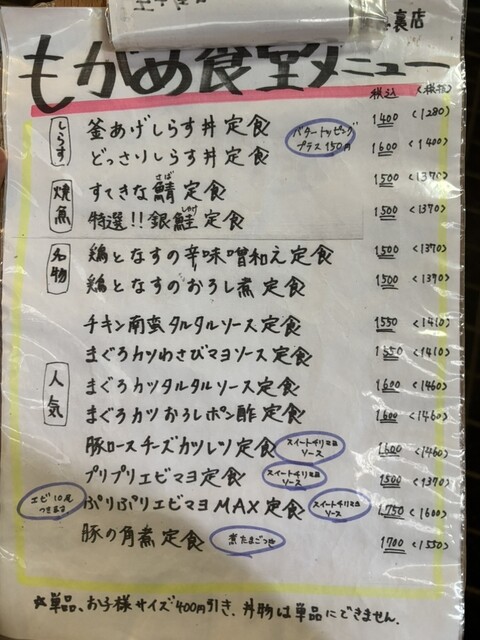 裏店
もがめ食堂メニュー
税込 <税抜>
しらす
釜あげしらす丼定食 バタートッピング プラス150円 1400 <1280>
どっさりしらす丼定食 1600 <1400>
焼魚
すてきな鯖定食 さば 1500 <1370>
特選!!銀鮭定食 しゃけ 1500 <1370>
名物
鶏となすの辛味噌和え定食 1500 <1370>
鶏となすのおろし煮定食 1500 <1370>
人気
チキン南蛮タルタルソース定食 1550 <1410>
まぐろカツわさびマヨソース定食 1550 <1410>
まぐろカツタルタルソース定食 1600 <1460>
まぐろカツおろしポン酢定食 1600 <1460>
豚ロースチーズカツレツ定食 スイートチリマヨソース 1600 <1460>
プリプリエビマヨ定食 スイートチリマヨソース 1500 <1370>
エビ10尾つきます ぷりぷりエビマヨMAX定食 スイートチリマヨソース 1750 <1600>
豚の角煮定食 煮たまごつき 1700 <1550>
☆単品、お子様サイズ400円引き、丼物は単品にできません.